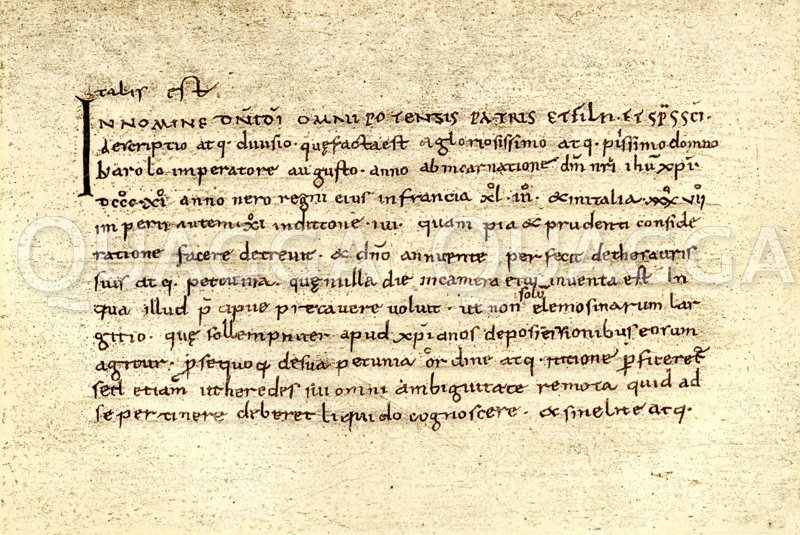 talis est.
IN NOMINE DNI DI OMNIPOTENTIS PATRIS ET FILII. ET SPS SCI.
descriptio atq. divisio. quę facta est a gloriosissimo atq. piissimo domno
karolo imperatore augusto. anno ab incarnatione dni nri ihu xpi.
DCCC.XI. anno vero regni eius in francia XL.III. & in italia XXX.VII
imperii autem .XI indictione .IIII. quam pia & prudenti conside
ratione facere decrevit. & dno annuente perfecit de thesauris
suis atq. pecunia. quę in illa die in camera eius inventa est. In
qua illud p̄cipue precavere voluit. ut non solū elemosinarum lar
gitio. quę sollempniter apud xpianos de possessionibus eorum
agitur. p se quoq. de sua pecunia ordine atq. ratione pficeret
sed etiam ut heredes sui omni ambiguitate remota quid ad
se pertinere deberet liquido cognoscere. & sine lite atq.
QUAGGA QUAGGA